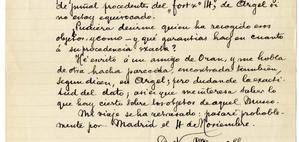 de puñal procedente del "fort nº 14, de Argel si
no estoy equivocado.
¿Pudiera decirme quien ha recogido esos
objetos, y como — y que garantias hay en cuanto
á su procedencia exacta?
He escrito á un amigo de Oran, y me habla
de otra hacha parecida, encontrada tambien,
segun dicen, en Argel; pero dudando la exacti-
tud del dato; asi es que me interesa saber lo
que hay cierto sobre los objetos de aquel Museo.
Mi viaje se ha retrasado; pasaré probable-
mente por Madrid el 4 de Noviembre.